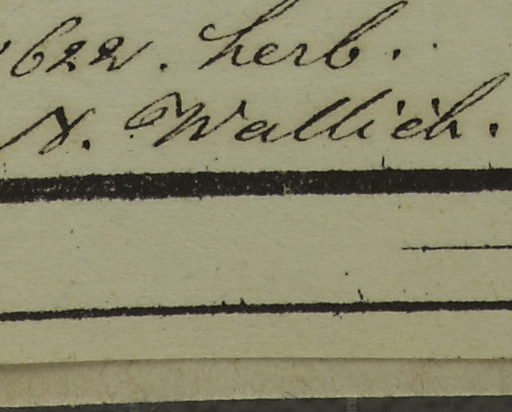 622. herb.
N. Wallich.